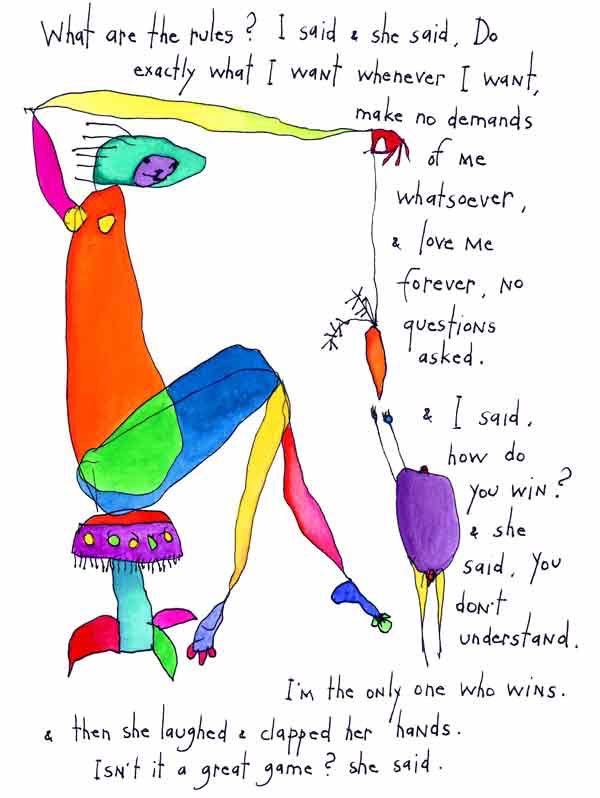 What are the rules? I said & she said, Do
exactly what I want whenever I want,
make no demands
of me
whatsoever,
& love me
forever, no
questions
asked.
& I said,
how do
you win?
& she
said, You
don't
understand.
I'm the only one who wins.
& then she laughed & clapped her hands.
Isn't it a great game? she said.